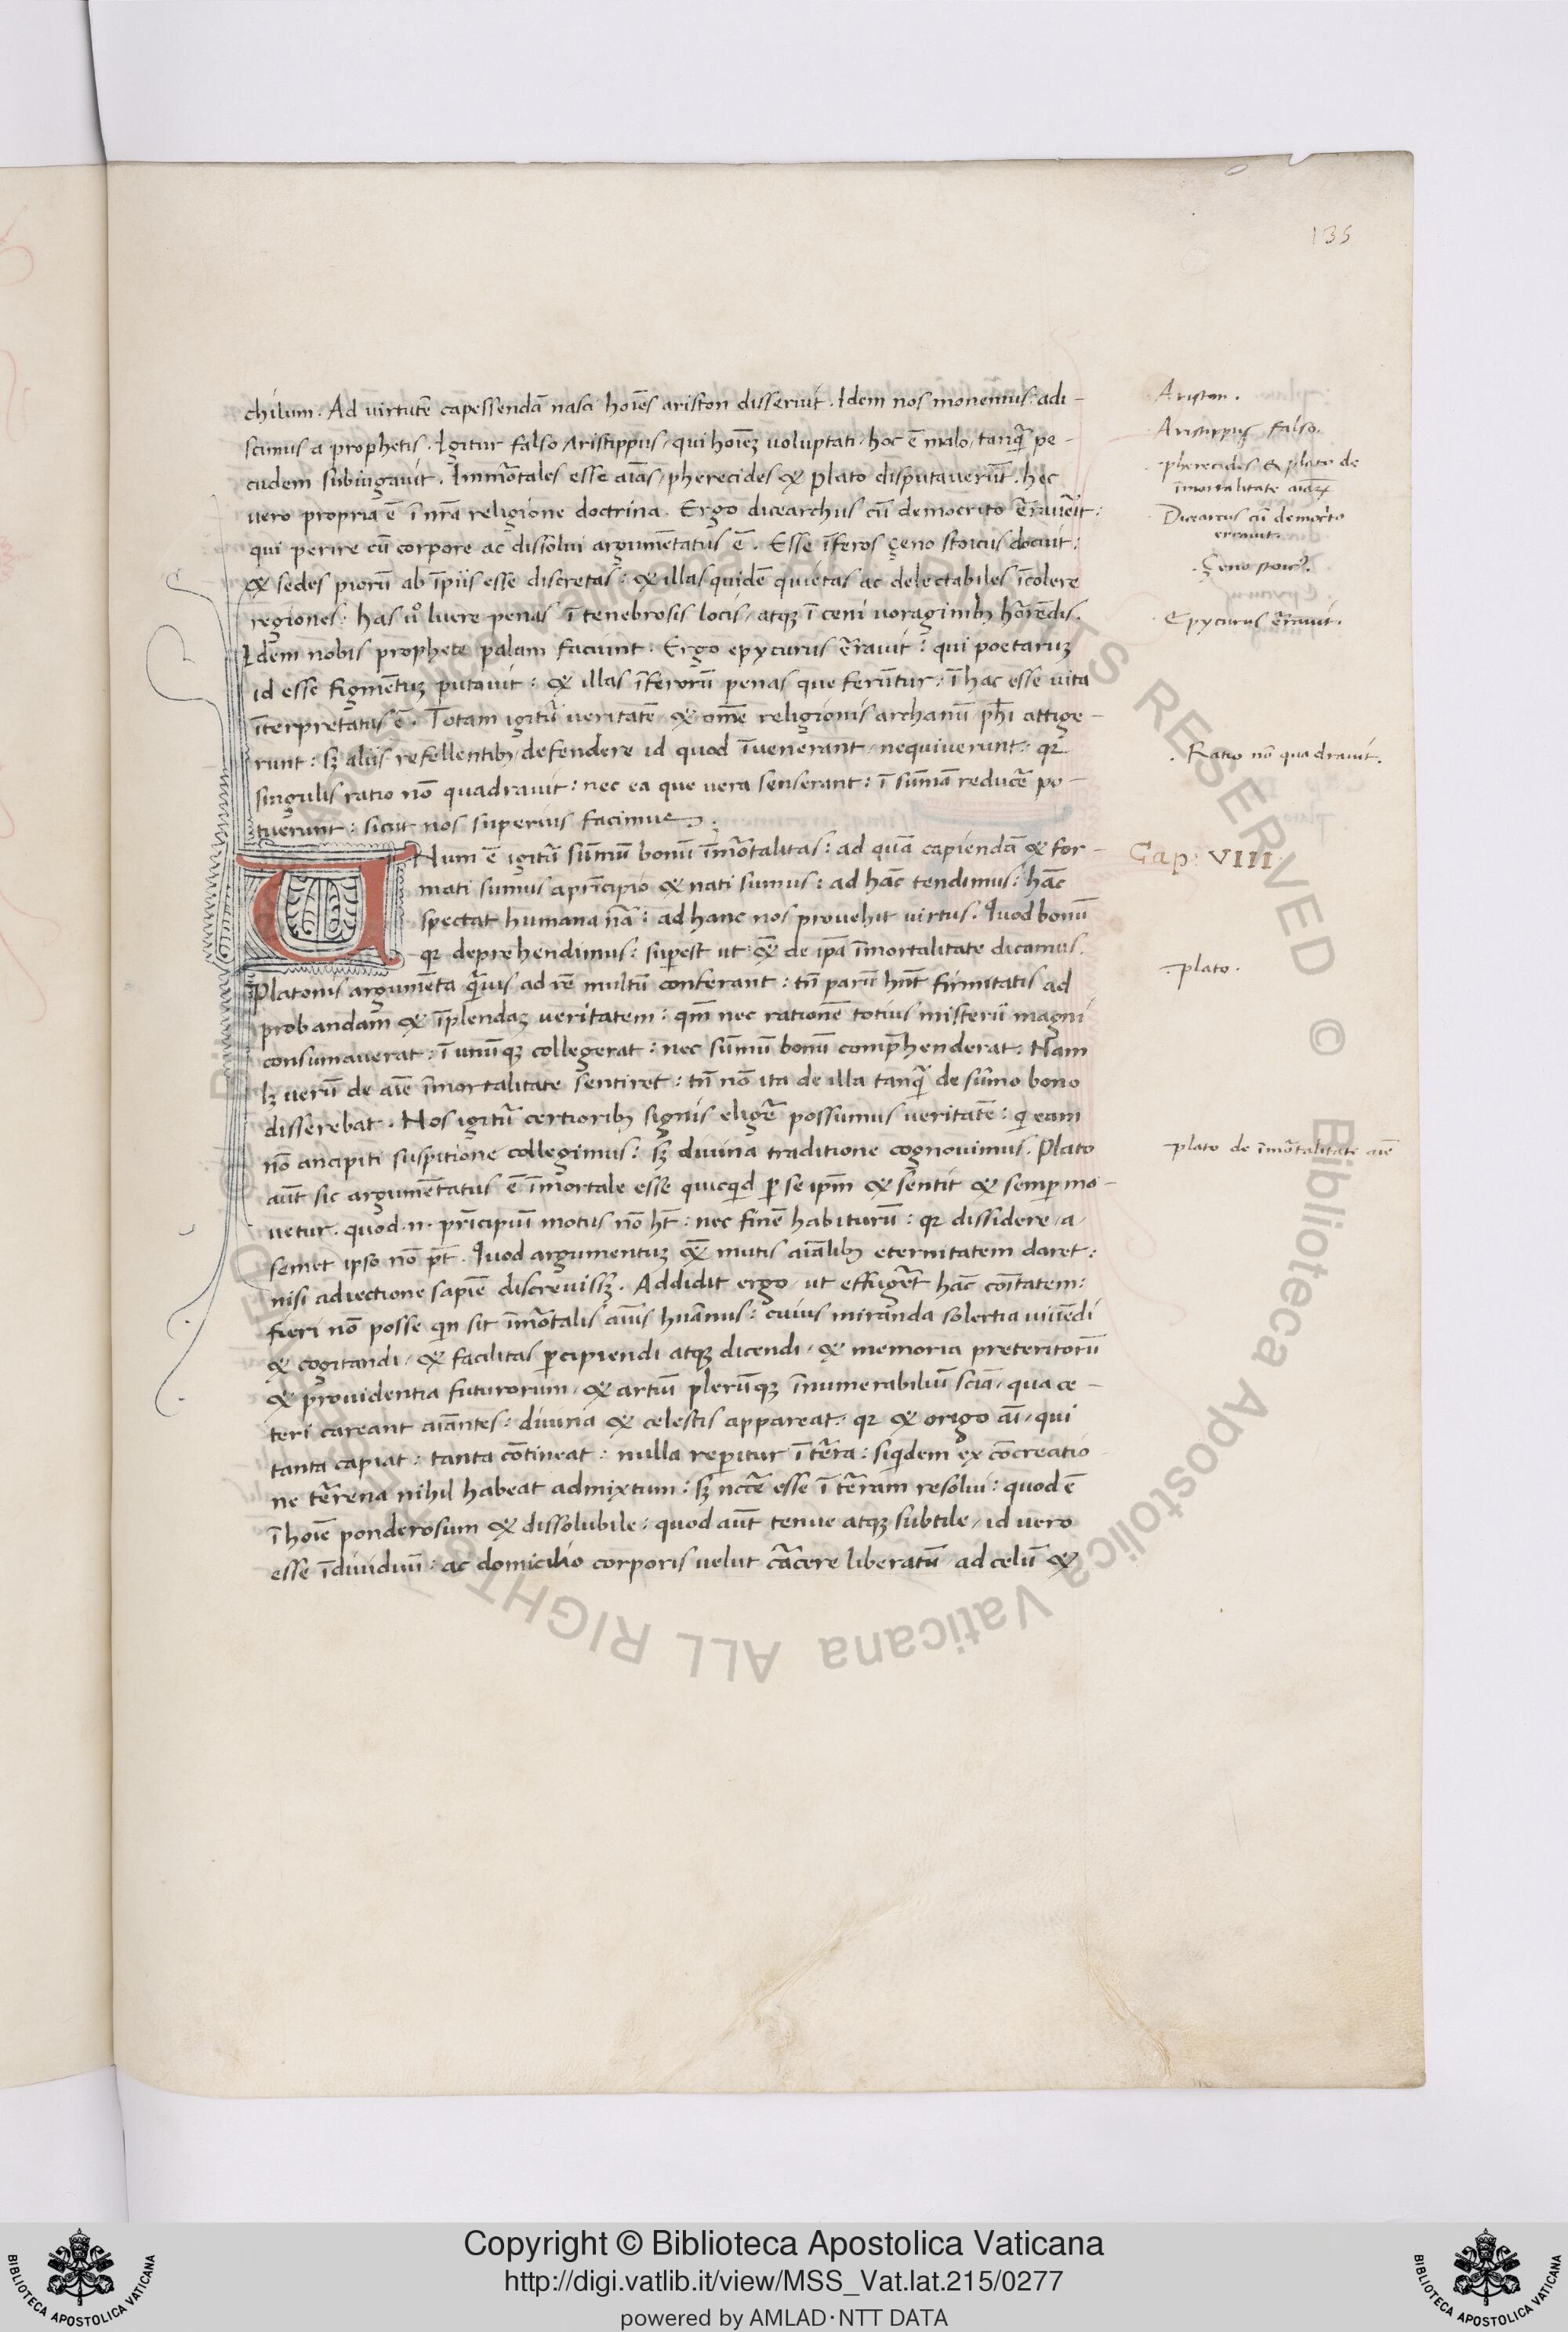 135
chilum. Ad virtutē capessendā nasci hoīes ariston disseruit. Idem nos monemus: adi-
scimus a prophetis. Igitur falso Aristippus, qui hoīeʒ voluptati, hoc ē malo, tanq̃ pe-
cudem subiugavit. Immõtales esse aīas, pherecides & plato disputaverūt. hec
vero propria ē ī nr̄a religione doctrina. Ergo dicearchus cū democrito
qui perire cū corpore ac dissolui argumētatus ē. Esse īferos çeno stoicus docuit:
& sedes piorū ab īpiis esse discretas: & illas quidē quietas ac delectabiles īcolere
regiones: has uº luere penas ī tenebrosis locis, atqꝫ ī ceni uoraginibꝫ
Idem nobis prophete palam faciunt. Ergo epycurus ērauit: qui poetaruʒ
id esse figmētuʒ putavit: & illas īferorū penas que ferūtur: ī hac esse vita
īterpretatus ē. Totam igitũ veritatē & om̄e religionis archanū ph̄i attige-
runt: sꝫ aliis refellentibꝫ defendere id quod īvenerant, nequiverunt: qꝛ
singulis ratio nō quadravit: nec ea que vera senserant: ī sum̄a reducē̃ po-
tuerunt: sicut nos superius facimus.
UNum ē igitũ sum̄ū bonū īmõtalitas: ad quā capiendā & for-
mati sumus a prīcipio & nati sumus: ad hāc tendimus: hāc
spectat humana nã: ad hanc nos provehit virtus. Quod bonū
qꝛ deprehendimus: superest ut & de ip̄a īmortalitate dicamus.
Platonis argumēta q̃uis ad rē multū conferant: tn̄ parū hn̄t firmitatis ad
probandam & īplendaʒ veritatem: qm̄ nec rationē totius misterii magni
consumaverat: ī unūqꝫ collegerat: nec sum̄ū bonū comp̄henderat. Nam
lꝫ uerū de aīe īmortalitate sentiret: tn̄ nō ita de illa tanq̃ de sum̄o bono
disserebat. Nos igitũ certioribꝫ signis eligē̃ possumus veritatē: q eam
nō ancipiti suspitione collegimus: sꝫ divina traditione cognovimus. Plato
aūt sic argumētatus ē īmortale esse quicqd ꝑ se ip̄m & sentit & semper mo-
vetur. quod .n. prīcipiū motus nō ht̄: nec finē habiturū: qꝛ dissidere, a,
semet ipso nō pt̄. Quod argumentuʒ & mutis aīalibꝫ eternitatem daret:
nisi adiectione sapiē discrevissꝫ. Addidit ergo, ut effugē̃t hāc
fieri nō posse qn sit īmõtalis aīus hūanus: cuius miranda solertia
& cogitandi, & facilitas ꝑcipiendi atqꝫ dicendi, & memoria preteritorū
& providentia futurorum, & artiū plerūqꝫ īnumerabiliū scīa, qua ce-
teri careant aīantes: divina & celestis appareat, qꝛ & origo aī, qui
tanta capiat: tanta cōtineat: nulla reperitur ī tẽra: siqdem ex cōcreatio
ne tẽrena nihil habeat admixtum: sꝫ nc̄c̄e esse ī tẽram resolui: quod ē
ī hoīe ponderosum & dissolubile: quod aūt tenue atqꝫ subtile, id vero
esse īdividuū: ac domicilio corporis velut cãcere liberatū, ad celū &
Ariston.
Aristippus falso.
pherecides & plato de
īmortalitate aīaꝝ
Dicearcus cū democ̃to
erravit.
Çeno stoicꝰ.
Epycurus ērauit.
Ratio nō quadravit.
Cap: VIII.
plato.
plato de īmõtalitate aīe
Biblioteca Apostolica Vaticana ALL RIGHTS RESERVED ©
Copyright © Biblioteca Apostolica Vaticana
http://digi.vatlib.it/view/MSS_Vat.lat.215/0277
powered by AMLAD·NTT DATA
BIBLIOTECA APOSTOLICA VATICANA
BIBLIOTECA APOSTOLICA VATICANA